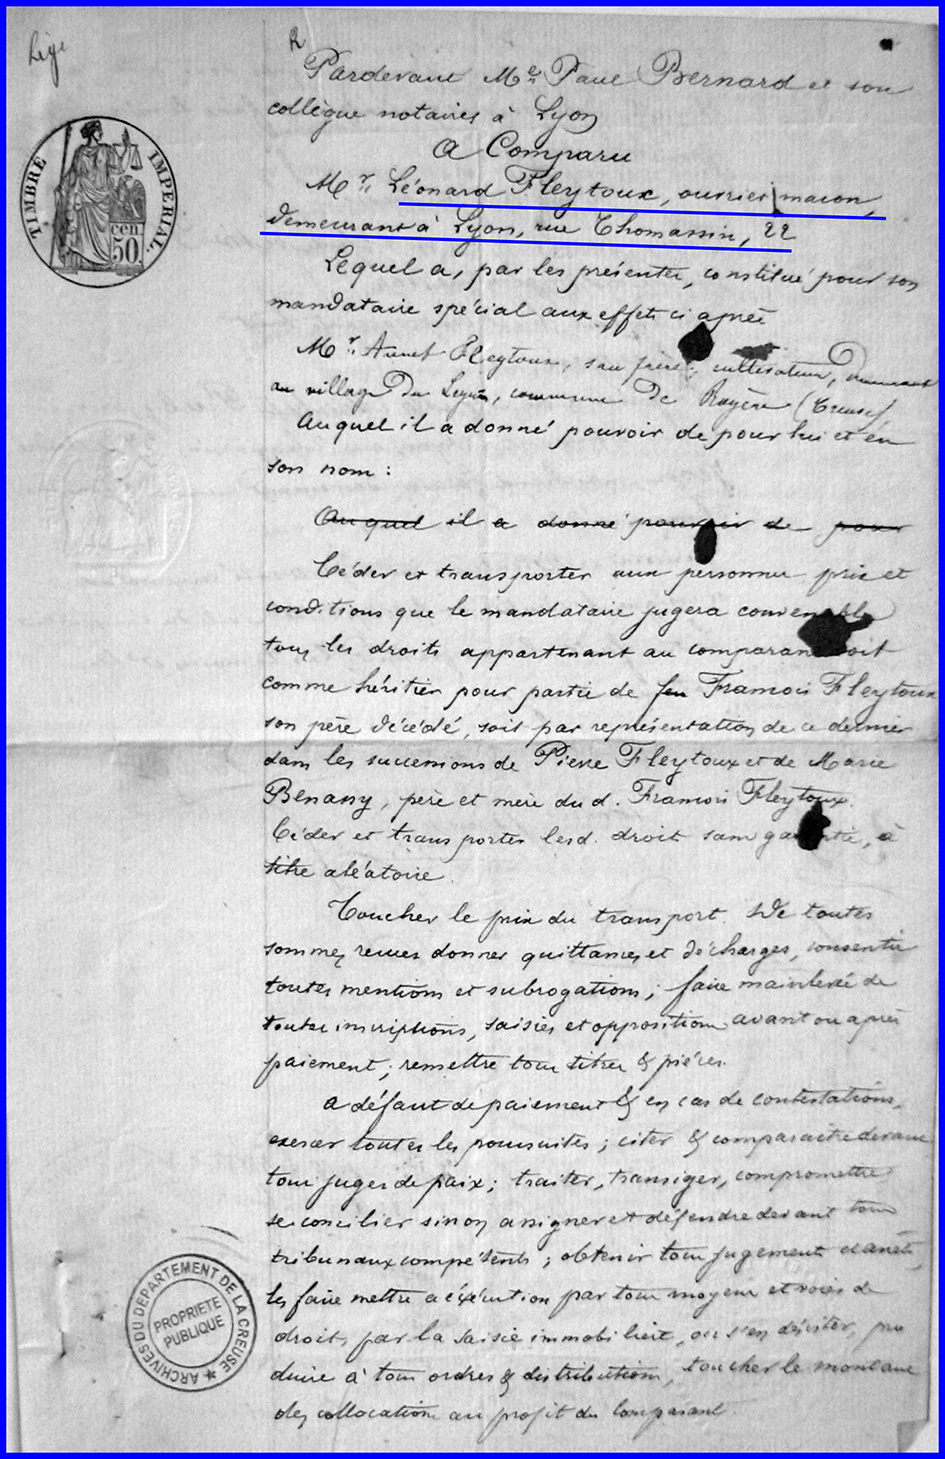 Pardevant Me Paul Bernard et son
collègue notaires à Lyon
A Comparu
Mr. Léonard Fleytoux, ouvrier macon,
demeurant à Lyon, rue Thomassin, 22
Lequel a, par les présentes, constitué pour son
mandataire spécial aux effets ci après
Mr. Annet Fleytoux, son frère, cultivateur, demeurant
au village du commune de Royère (Creuse)
Auquel il a donné pouvoir de pour lui et en
son nom :
Auquel il a donné pouvoir de pour
Céder et transporter aux personnes prix et
conditions que le mandataire jugera convenable
tous les droits appartenant au comparant soit
comme héritier pour partie de feu Francois Fleytoux
son père décédé, soit par représentation de ce dernier
dans les successions de Pierre Fleytoux et de Marie
Benassy, père et mère du d. Francois Fleytoux.
Céder et transporter lesd. droits sans garantie, à
titre aléatoire.
Toucher le prix du transport. De toutes
sommes recues donner quittances et décharges, consentir
toutes mentions et subrogations ; faire mainlevée de
toutes inscriptions, saisies et oppositions avant ou après
paiement ; remettre tous titres & pièces.
A défaut de paiement & en cas de contestations,
exercer toutes les poursuites ; citer & comparaitre devant
tous juges de paix ; traiter, transiger, compromettre
se concilier sinon assigner et défendre devant tous
tribunaux compétents ; obtenir tous jugements et arrêts,
les faire mettre à exécution par tous moyens et voies de
droit, par la saisie immobilière, ou s'en désister, pro
duire à tous ordres & distributions, toucher le montant
des collocations au profit du comparant.
TIMBRE IMPERIAL.
50 cen
ARCHIVES DU DEPARTEMENT DE LA CREUSE
PROPRIETE
PUBLIQUE